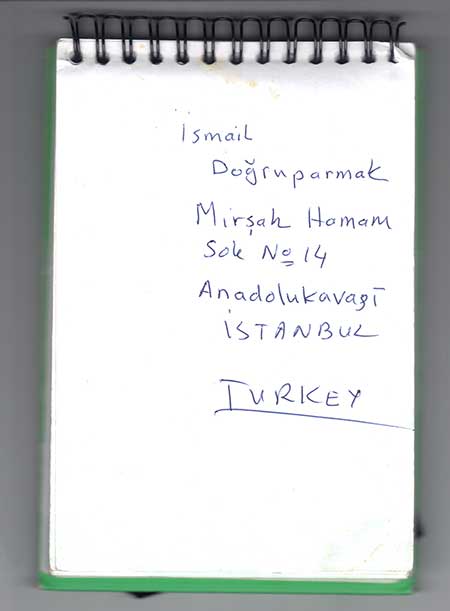 İsmail
Doğruparmak
Mirşah Hamam
Sok No 14
Anadolukavagī
İSTANBUL
TURKEY